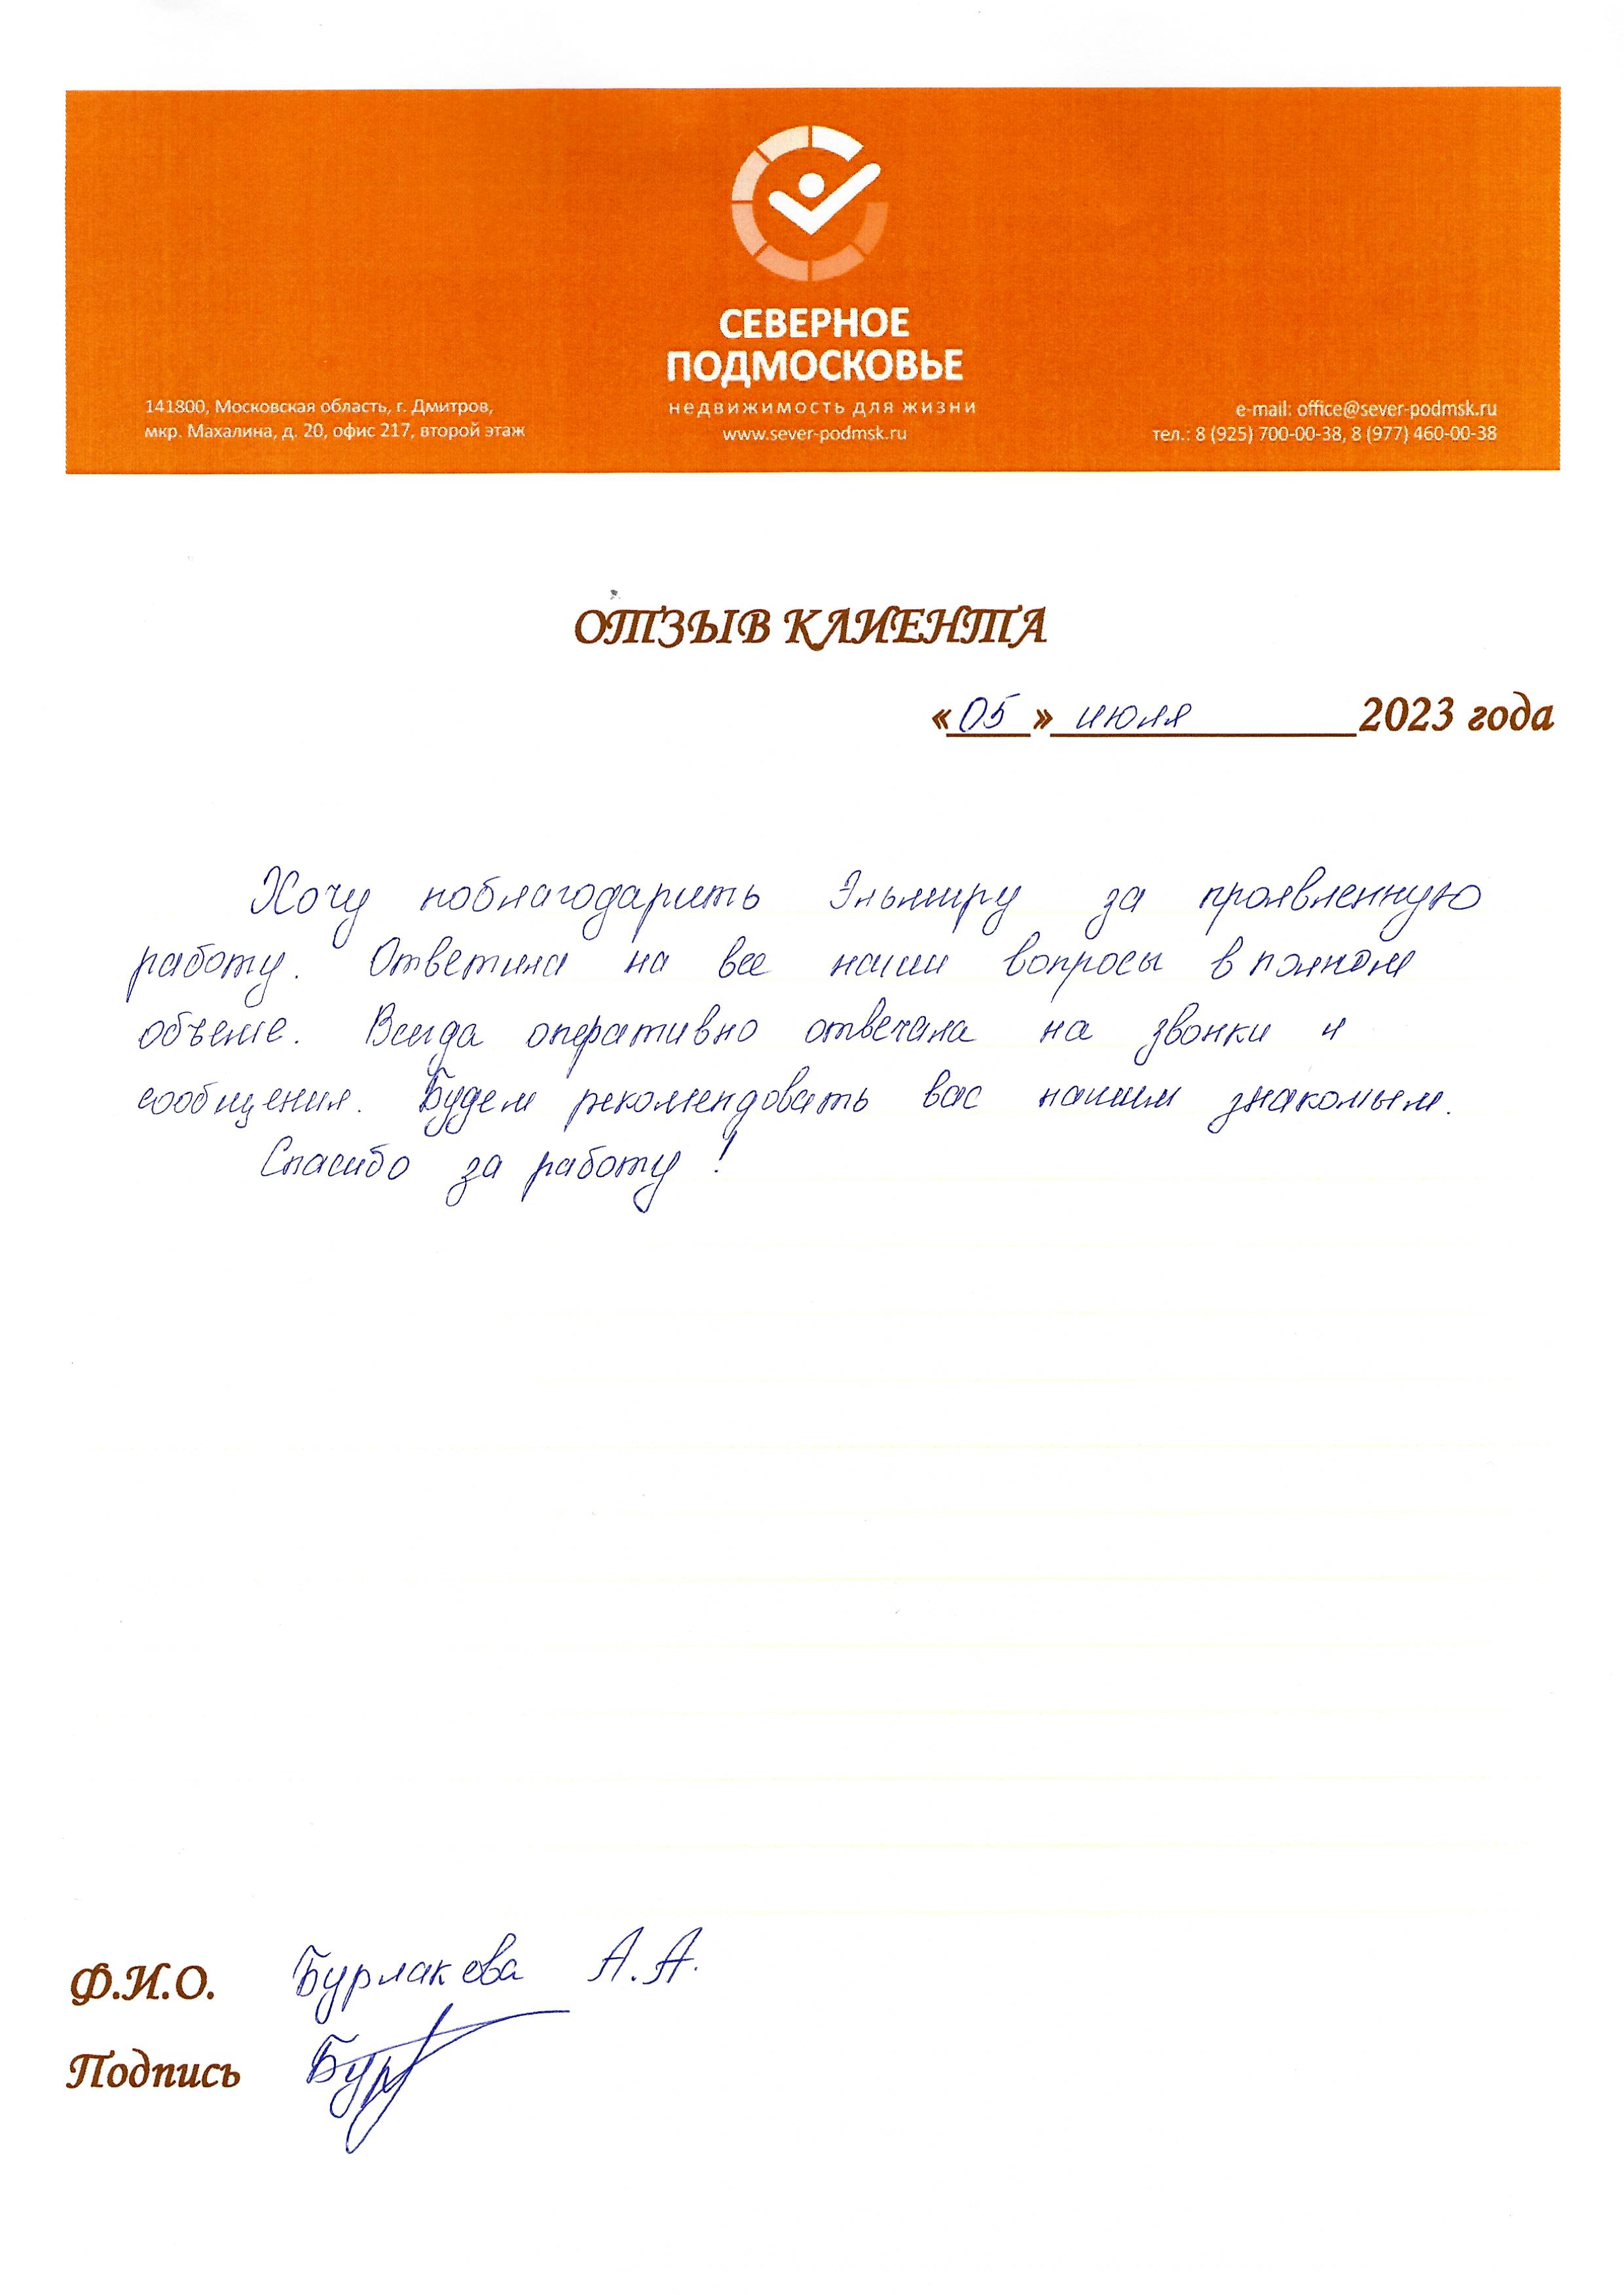 СЕВЕРНОЕ
ПОДМОСКОВЬЕ
недвижимость для жизни
www.sever-podmsk.ru
141800, Московская область, г. Дмитров,
мкр. Махалина, д. 20, офис 217, второй этаж
e-mail: office@sever-podmsk.ru
тел.: 8 (925) 700-00-38, 8 (977) 460-00-38
ОТЗЫВ КЛИЕНТА
«05» июля 2023 года
Хочу поблагодарить Эльмиру за проявленную
работу. Ответила на все наши вопросы в полном
объеме. Всегда оперативно отвечала на звонки и
сообщения. Будем рекомендовать вас нашим знакомым.
Спасибо за работу!
Ф.И.О. Бурлакова А.А.
Подпись Бур